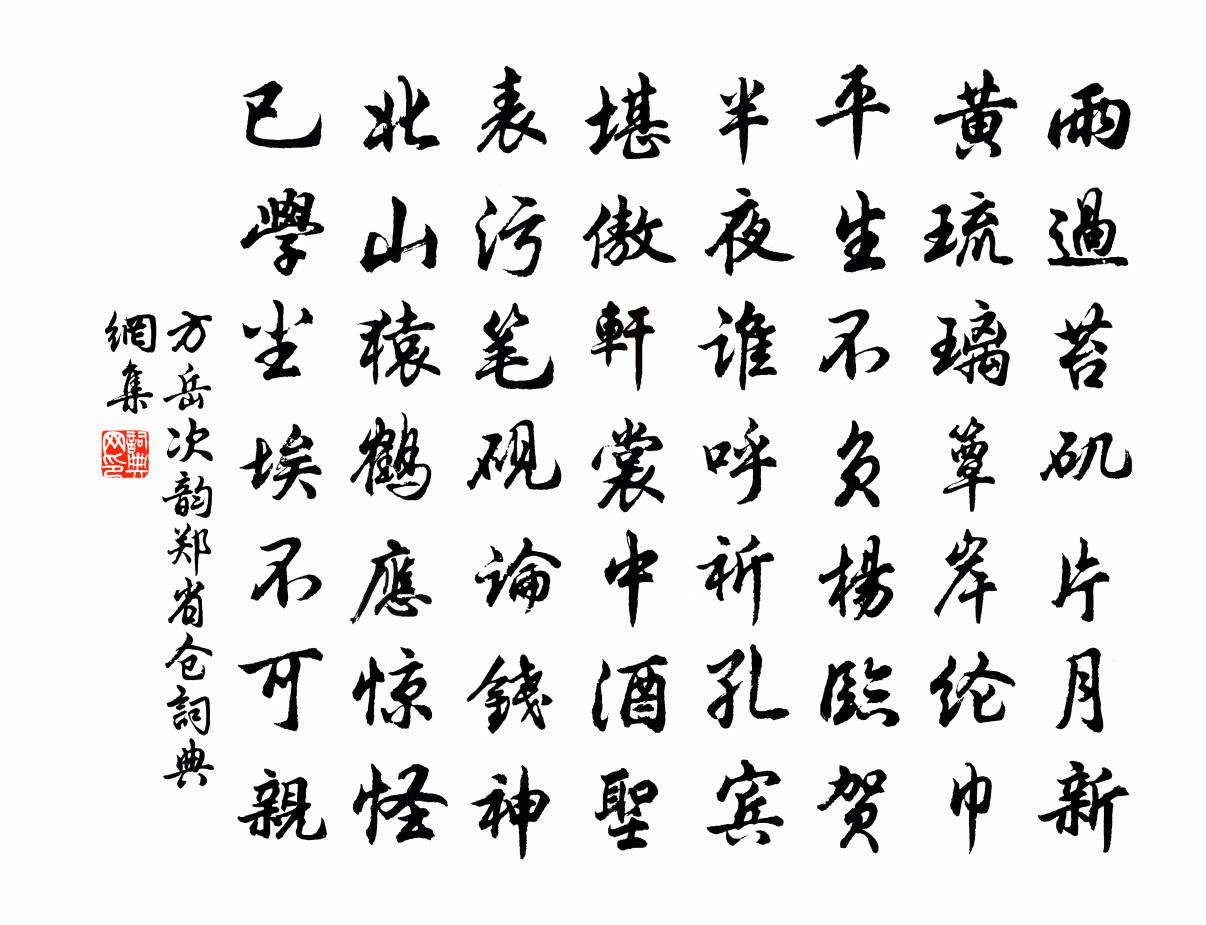 雨過苔矶片月新
黄琉璃簟岸纶巾
平生不负楊臨贺
半夜谁呼祈孔宾
堪傲軒裳中酒聖
表污笔砚論錢神
北山猿鶴應惊怪
已學尘埃不可親
方岳次韵郑省仓詞典
網集
詞典网印